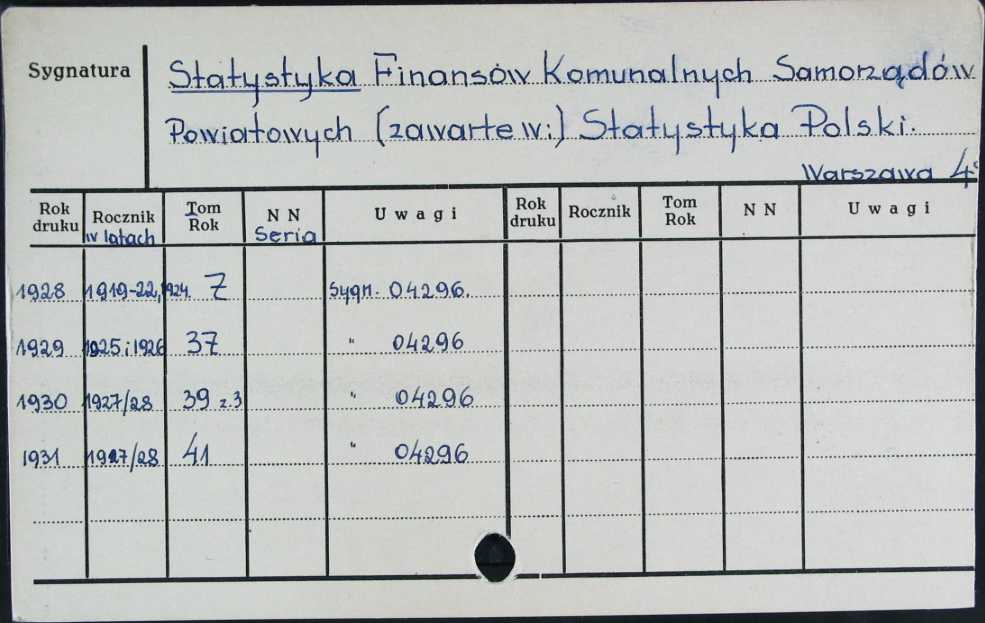 Sygnatura
Statystyka Finansów Komunalnych Samorządów
Powiatowych (zawarte w:) Statystyka Polski.
Warszawa 4°
Rok druku Rocznik w latach Tom Rok N N Seria Uwagi Rok druku Rocznik Tom Rok N N Uwagi
1928 1919-22, 1924. 7 Sygn. 04296.
1929 1925 i 1926 37 " 04296
1930 1927/28 39 z.3 " 04296
1931 1927/28 41 " 04296